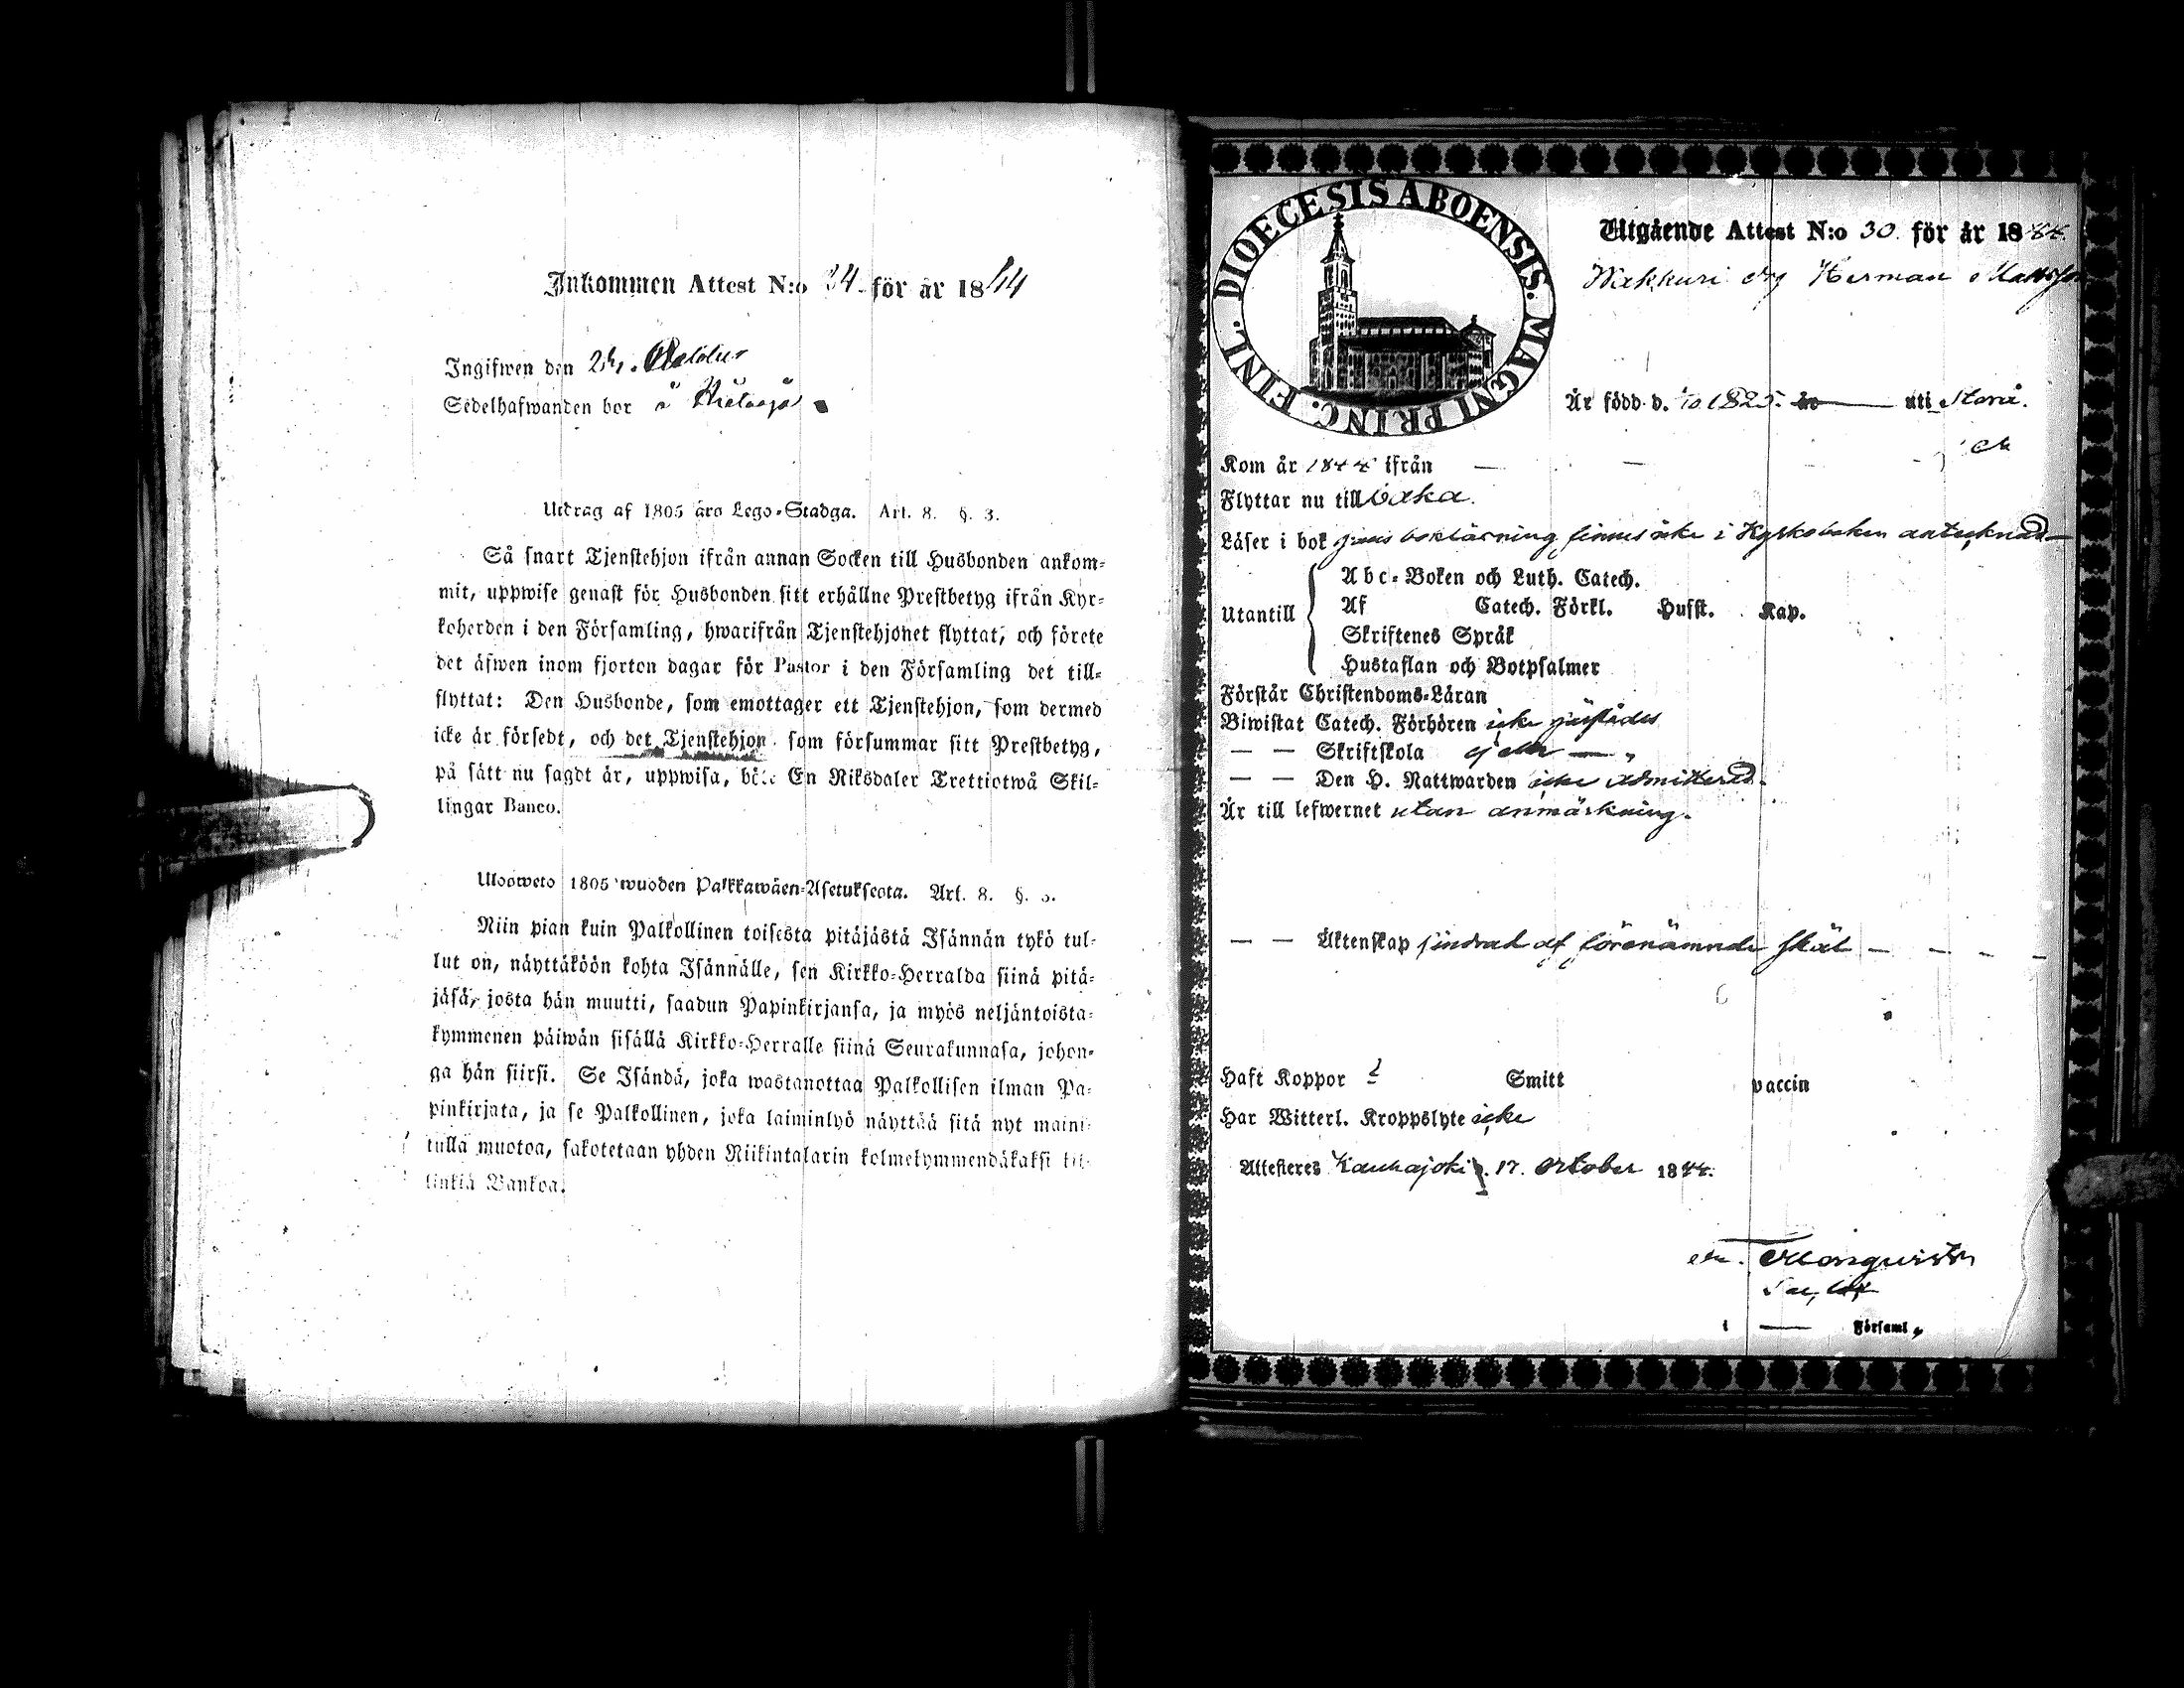 Inkommen Attest N:o 24 för år 1844
Ingifwen den 24. October
Sedelhafwanden bor å
Utdrag af 1805 års Lego-Stadga. Art. 8. §. 3.
Så snart Tjenstehjon ifrån annan Socken till Husbonden ankom-
mit, uppwise genast för Husbonden sitt erhållne Prestbetyg ifrån Kyr-
koherden i den Församling, hwarifrån Tjenstehjonet flyttat, och förete
det äfwen inom fjorton dagar för Pastor i den Församling det till-
flyttat: Den Husbonde, som emottager ett Tjenstehjon, som dermed
icke är försedt, och det Tjenstehjon som försummar sitt Prestbetyg,
på sätt nu sagdt är, uppwisa, böte En Riksdaler Trettiotwå Skil-
lingar Banco.
Ulosweto 1805 wuoden Palkkawäen-Asetuksesta. Art. 8. §. 3.
Niin pian kuin Palkollinen toisesta pitäjästä Isännän tykö tul-
lut on, näyttäköön kohta Isännälle, sen Kirkko-Herralda siinä pitä-
jäsä, josta hän muutti, saadun Papinkirjansa, ja myös neljäntoista-
kymmenen päiwän sisällä Kirkko-Herralle siinä Seurakunnasa, johon-
ga hän siirsi. Se Isändä, joka wastanottaa Palkollisen ilman Pa-
pinkirjata, ja se Palkollinen, joka laiminlyö näyttää sitä nyt maini-
tulla muotoa, sakotetaan yhden Riikintalarin kolmekymmendäkaksi kil-
linkiä Bankoa.
DIOECESIS ABOENSIS. MAGNI PRINC. FINL.
Utgående Attest N:o 30. för år 1844.
Wakkuri Herman Mattsson
Är född d. 10 1825. år uti Storå.
Kom år 1844 ifrån
Flyttar nu tillbaka.
Läser i bok boklärning finnes icke i Kyrkoboken antecknad
Utantill
Abc-Boken och Luth. Catech.
Af Catech. Förkl. Hufst. Kap.
Skriftenes Språk
Hustaflan och Botpsalmer
Förstår Christendoms-Läran
Biwistat Catech. Förhören icke härstädes
— — Skriftskola ej eller —
— — Den H. Nattwarden icke admitterad.
Är till lefwernet utan anmärkning.
— — Äktenskap hindrad af förenämnde skäl — — — —
Haft Koppor ? Smitt vaccin
Har Witterl. Kroppslyte icke
Attesteres Kauhajoki d. 17. October 1844.
i — Församl.